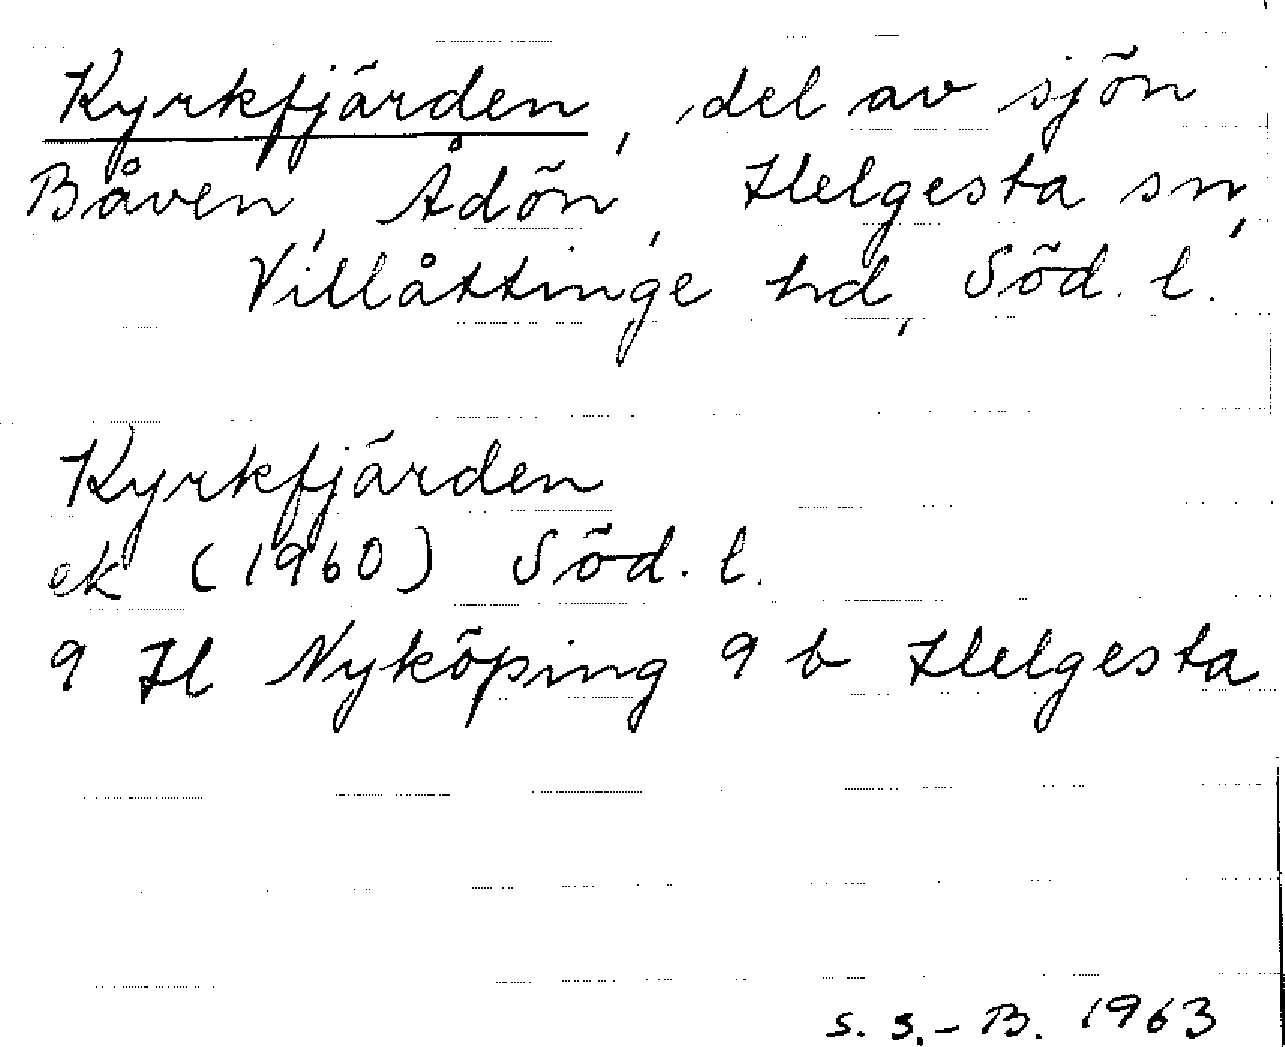 Kyrkfjärden, del av sjön
Båven, Ådön, Helgesta sn,
Villåttinge hd, Söd. l.
Kyrkfjärden
ek (1960) Söd. l.
9 H Nyköping 9 b Helgesta
s. s.-B. 1963